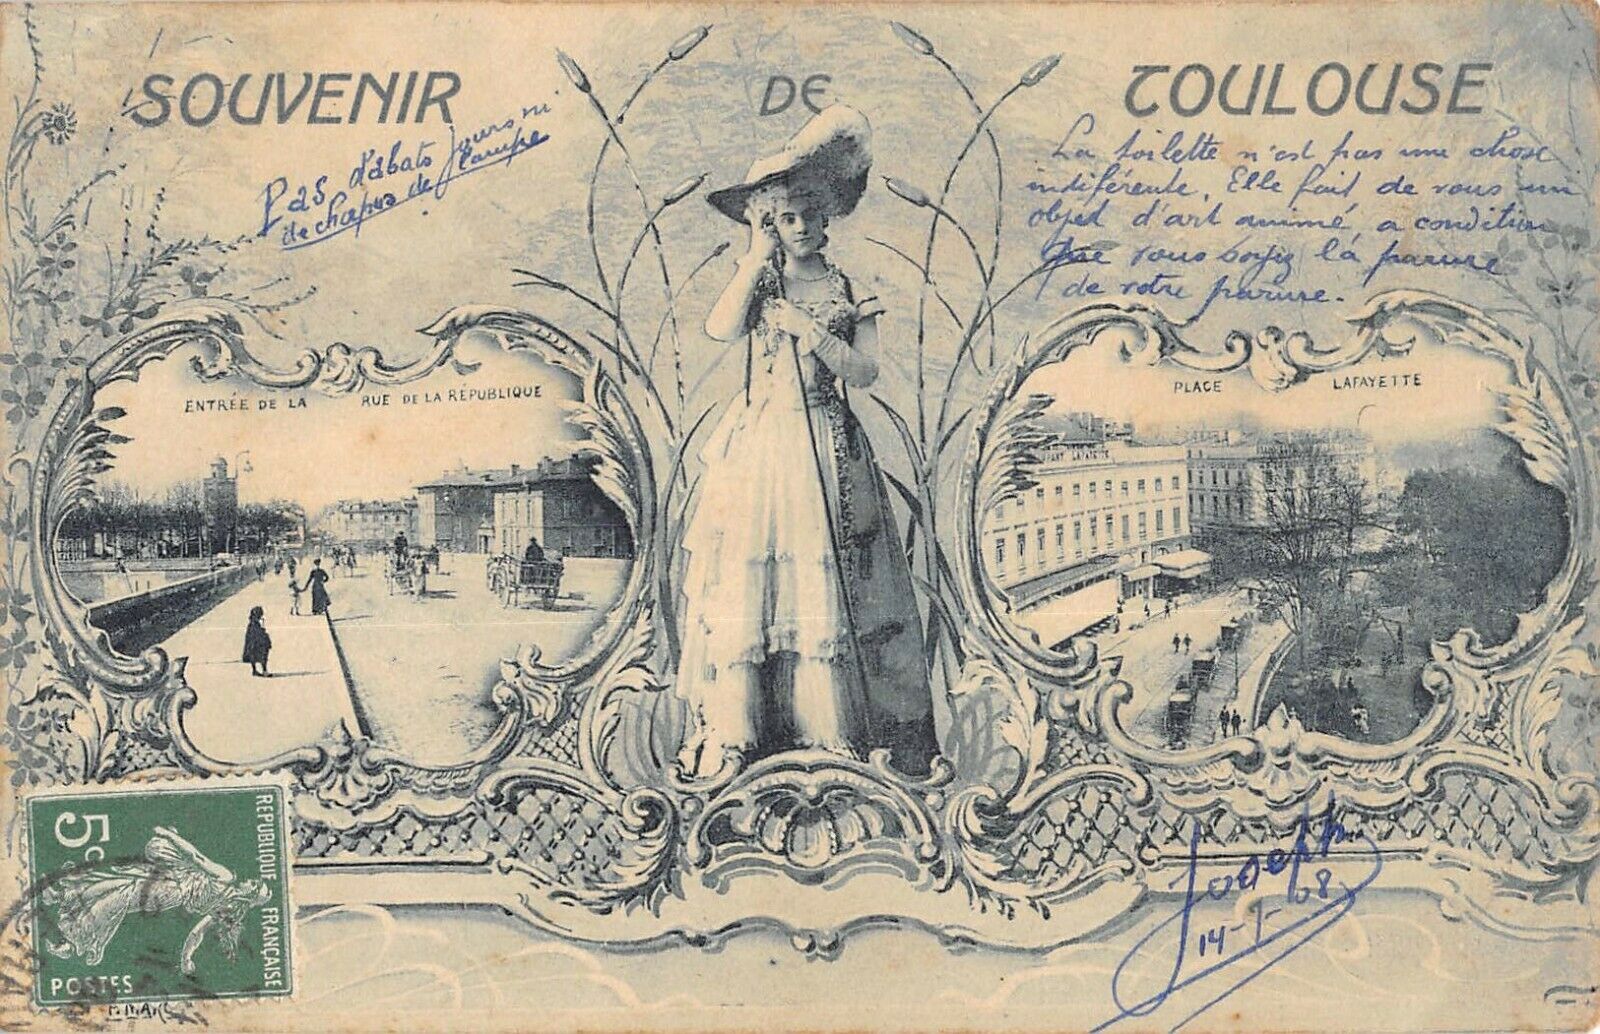 SOUVENIR DE TOULOUSE
Pas d'abats jours ni
de chapeaux de lampe
La toilette n'est pas une chose
indiférente. Elle fait de vous un
objet d'art animé, a condition
que vous soyiez là parure
de votre parure.
ENTRÉE DE LA RUE DE LA RÉPUBLIQUE
PLACE LAFAYETTE
LAFAYETTE
5c
REPUBLIQUE FRANÇAISE
POSTES
Joseph
08